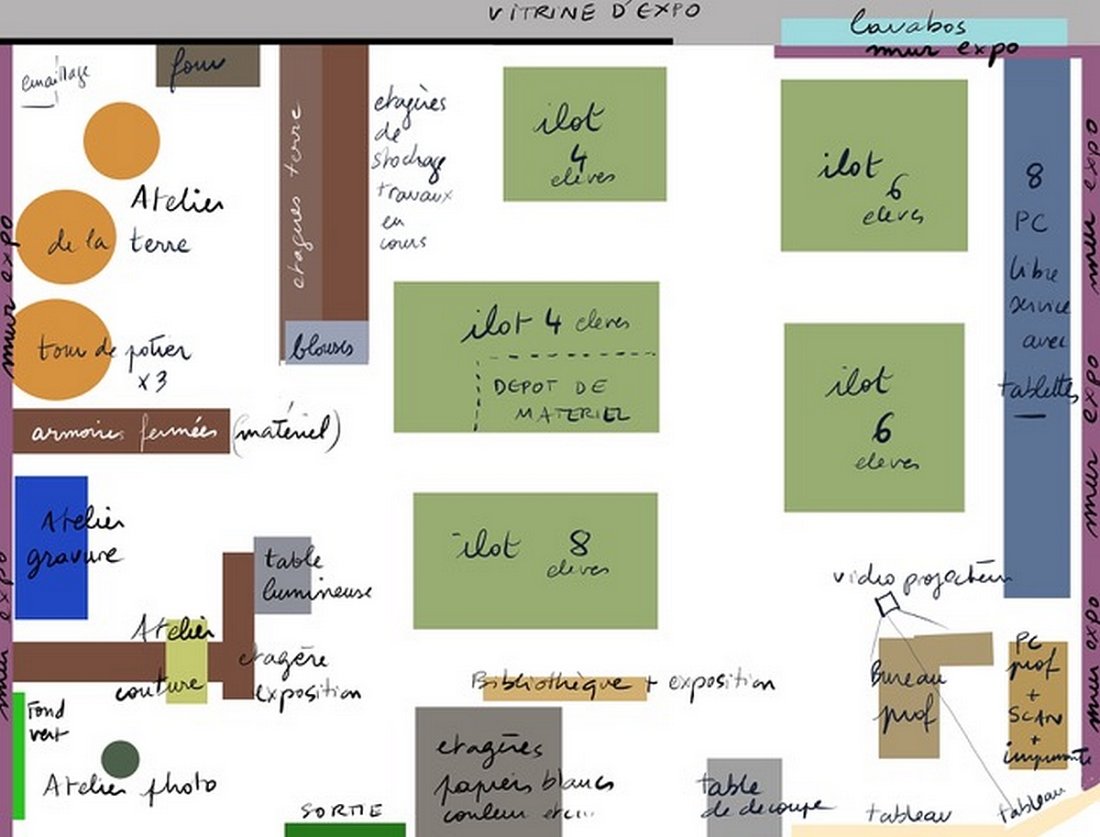 VITRINE D'EXPO
lavabos
mur expo
emaillage
four
etagères terre
etagères
de
stockage
travaux
en
cours
blouses
ilot
4
eleves
ilot
6
eleves
8
PC
libre
service
avec
tablettes
mur expo
mur expo
mur expo
mur expo
mur expo
Atelier
de la terre
tour de potier
x3
armoires fermées (matériel)
ilot 4 eleves
DEPOT DE
MATERIEL
ilot
6
eleves
Atelier
gravure
table
lumineuse
ilot 8
eleves
video projecteur
Atelier
couture
etagère
exposition
Bibliothèque + exposition
Bureau
prof
PC
prof
+
SCAN
+
imprimante
Fond
vert
Atelier photo
SORTIE
etagères
papiers blancs
couleur etc...
table
de decoupe
tableau
tableau